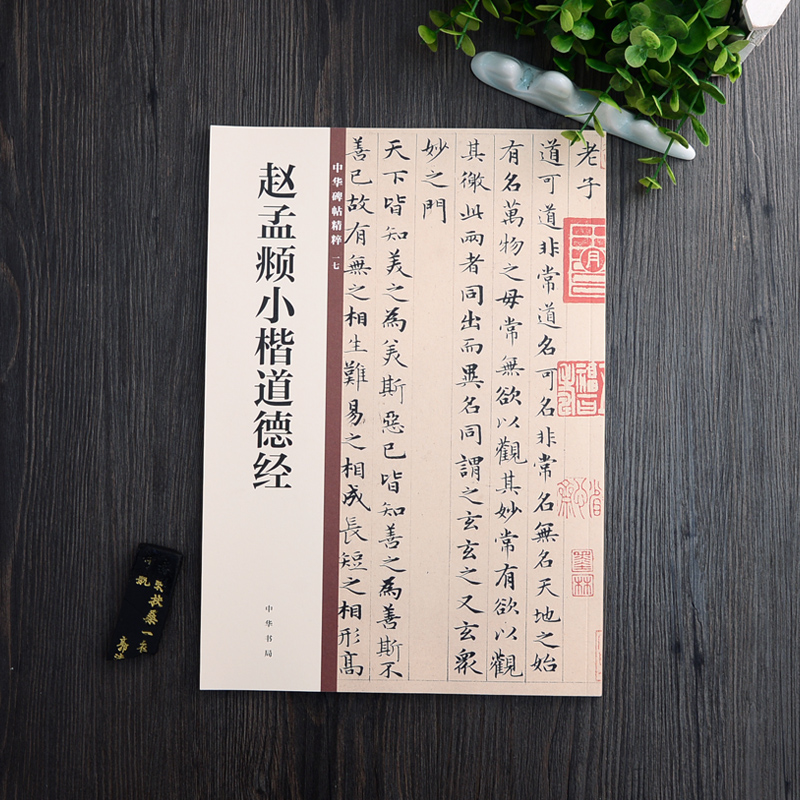 赵孟𫖯小楷道德经
中华碑帖精粹 一七
中华书局
老子
道可道非常道名可名非常名無名天地之始
有名萬物之母常無欲以觀其妙常有欲以觀
其徼此兩者同出而異名同謂之玄玄之又玄衆
妙之門
天下皆知美之為美斯惡已皆知善之為善斯不
善已故有無之相生難易之相成長短之相形高
墨林
扶桑一